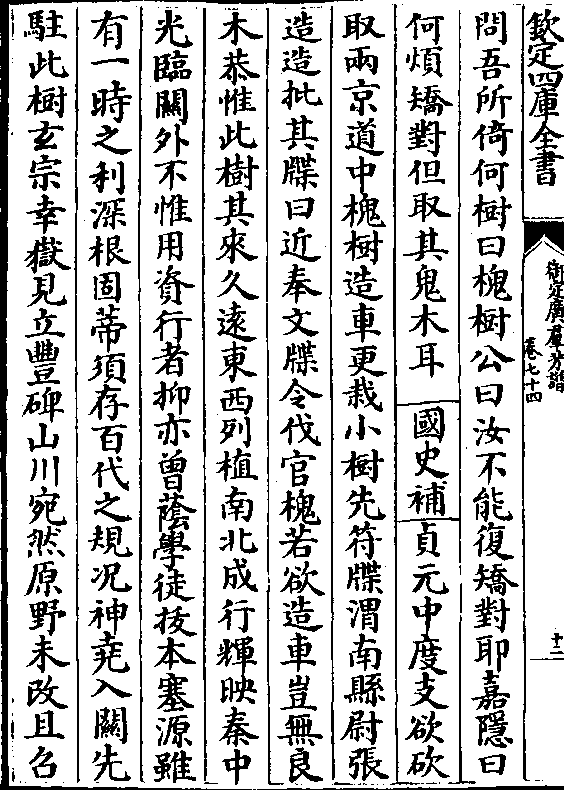 欽定四庫全書
御定廣羣芳譜
卷七十四
十二
問吾所倚何樹曰槐樹公曰汝不能復矯對耶嘉隱曰
何煩矯對但取其鬼木耳 國史補 貞元中度支欲砍
取兩京道中槐樹造車更栽小樹先符牒渭南縣尉張
造造批其牒曰近奉文牒令伐官槐若欲造車豈無良
木恭惟此樹其來久遠東西列植南北成行輝映秦中
光臨關外不惟用資行者抑亦曾蔭學徒拔本塞源雖
有一時之利深根固蔕須存百代之規况神堯入關先
駐此樹玄宗幸嶽見立豐碑山川宛然原野未改且召